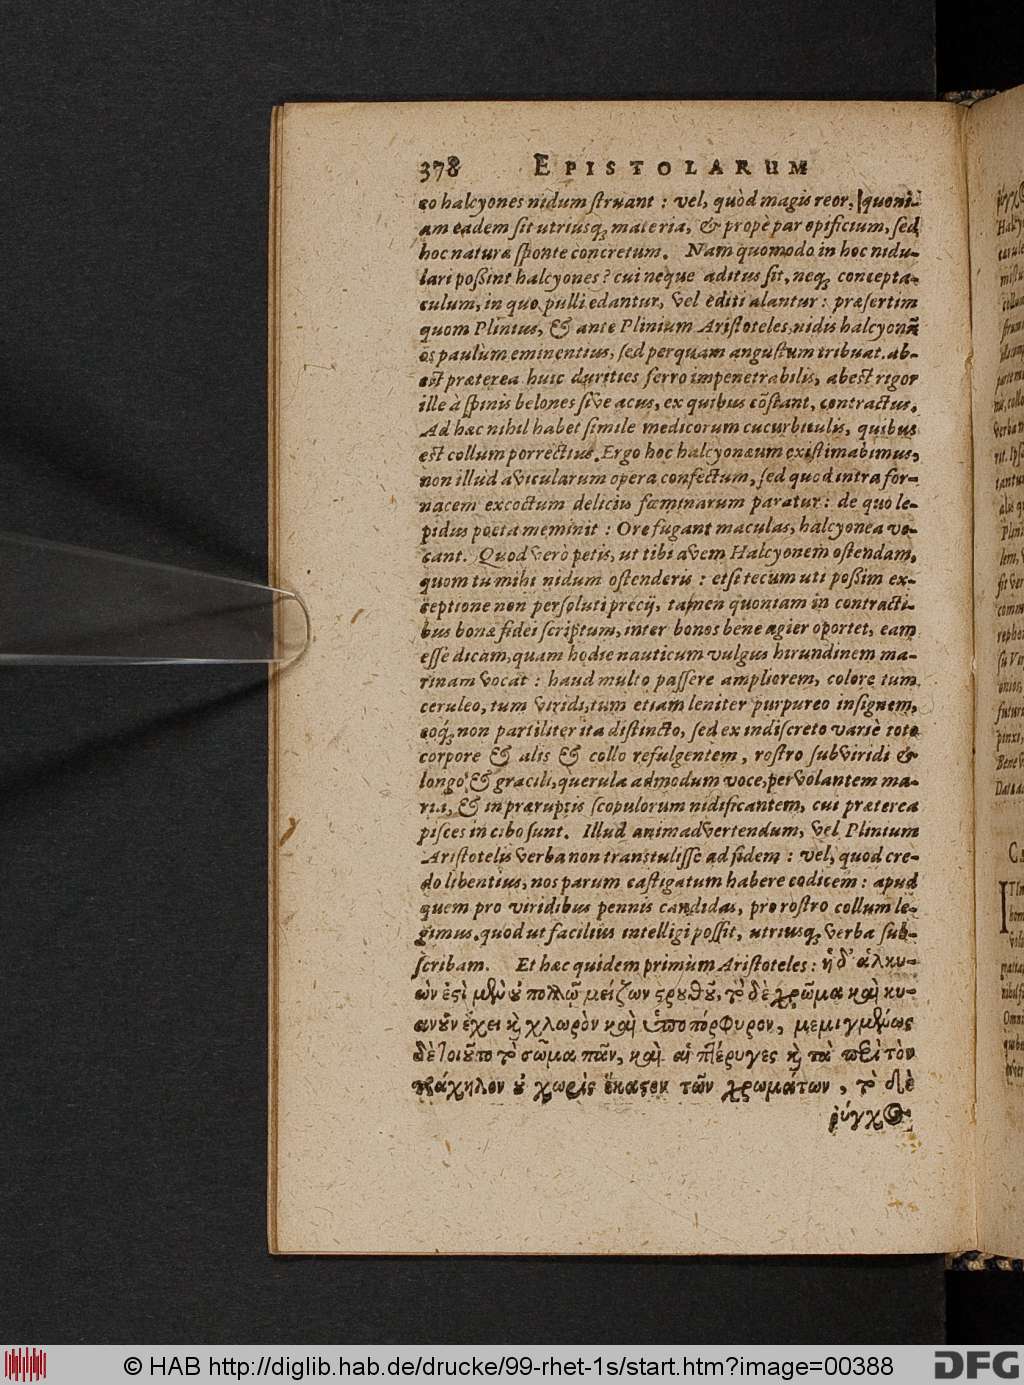 378 EPISTOLARUM
eo halcyones nidum struant : vel, quòd magis reor, quoni-
am eadem sit utriusq; materia, & propè par opificium, sed
hoc naturæ sponte concretum. Nam quomodo in hoc nidu-
lari poßint halcyones? cui neque aditus sit, neq; concepta-
culum, in quo pulli edantur, vel editi alantur : præsertim
quom Plinius, & ante Plinium Aristoteles, nidis halcyonū
os paulùm eminentius, sed perquam angustum tribuat. ab-
est præterea huic durities ferro impenetrabilis, abest rigor
ille à spinis belones sive acus, ex quibus cōstant, contractus.
Ad hæc nihil habet simile medicorum cucurbitulis, quibus
est collum porrectius. Ergo hoc halcyonæum existimabimus,
non illud avicularum opera confectum, sed quod intra for-
nacem excoctum deliciis fæminarum paratur : de quo le-
pidus poëta meminit : Ore fugant maculas, halcyonea vo-
cant. Quod verò petis, ut tibi avem Halcyonem ostendam,
quom tu mihi nidum ostenderis : etsi tecum uti poßim ex-
ceptione non persoluti precij, tamen quoniam in contracti-
bus bonæ fidei scriptum, inter bonos bene agier oportet, eam
esse dicam, quam hodie nauticum vulgus hirundinem ma-
rinam vocat : haud multo passere ampliorem, colore tum
ceruleo, tum viridi, tum etiam leniter purpureo insignem,
eoq; non partiliter ita distincto, sed ex indiscreto variè toto
corpore & alis & collo refulgentem, rostro subviridi &
longo & gracili, querula admodum voce, pervolantem ma-
ria, & in præruptis scopulorum nidificantem, cui præterea
pisces in cibo sunt. Illud animadvertendum, vel Plinium
Aristotelis verba non transtulisse ad fidem : vel, quod cre-
do libentius, nos parum castigatum habere codicem : apud
quem pro viridibus pennis candidas, pro rostro collum le-
gimus. quod ut facilius intelligi possit, utriusq; verba sub-
scribam. Et hæc quidem primùm Aristoteles : ἡ δ' ἀλκυ-
ὼν ἐστὶ μὲν οὐ πολλῷ μείζων στρουθοῦ, τὸ δὲ χρῶμα καὶ κυ-
ανοῦν ἔχει καὶ χλωρὸν καὶ ὑποπόρφυρον, μεμιγμένως
δὲ τοιοῦτο τὸ σῶμα πᾶν, καὶ αἱ πτέρυγες καὶ τὰ περὶ τὸν
τράχηλον οὐ χωρὶς ἕκαστον τῶν χρωμάτων, τὸ δὲ
ῥύγχος
© HAB http://diglib.hab.de/drucke/99-rhet-1s/start.htm?image=00388
DFG